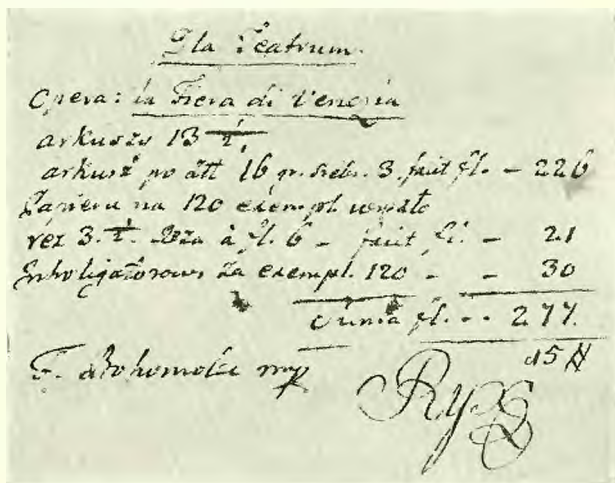 Dla Teatrum.
Opera: la Fiera di Venezia
arkuszy 13 1/2,
arkusz po złł 16 gr. srebr. 3. facit fl. – 226
Papieru na 120 exempl. weszło
rez 3. 1/2. Reza à fl. 6 – facit fl. – 21
Introligatorowi za exempl. 120 – – 30
Suma fl. – – 277.
F. Bohomolec mp
15
Ryx